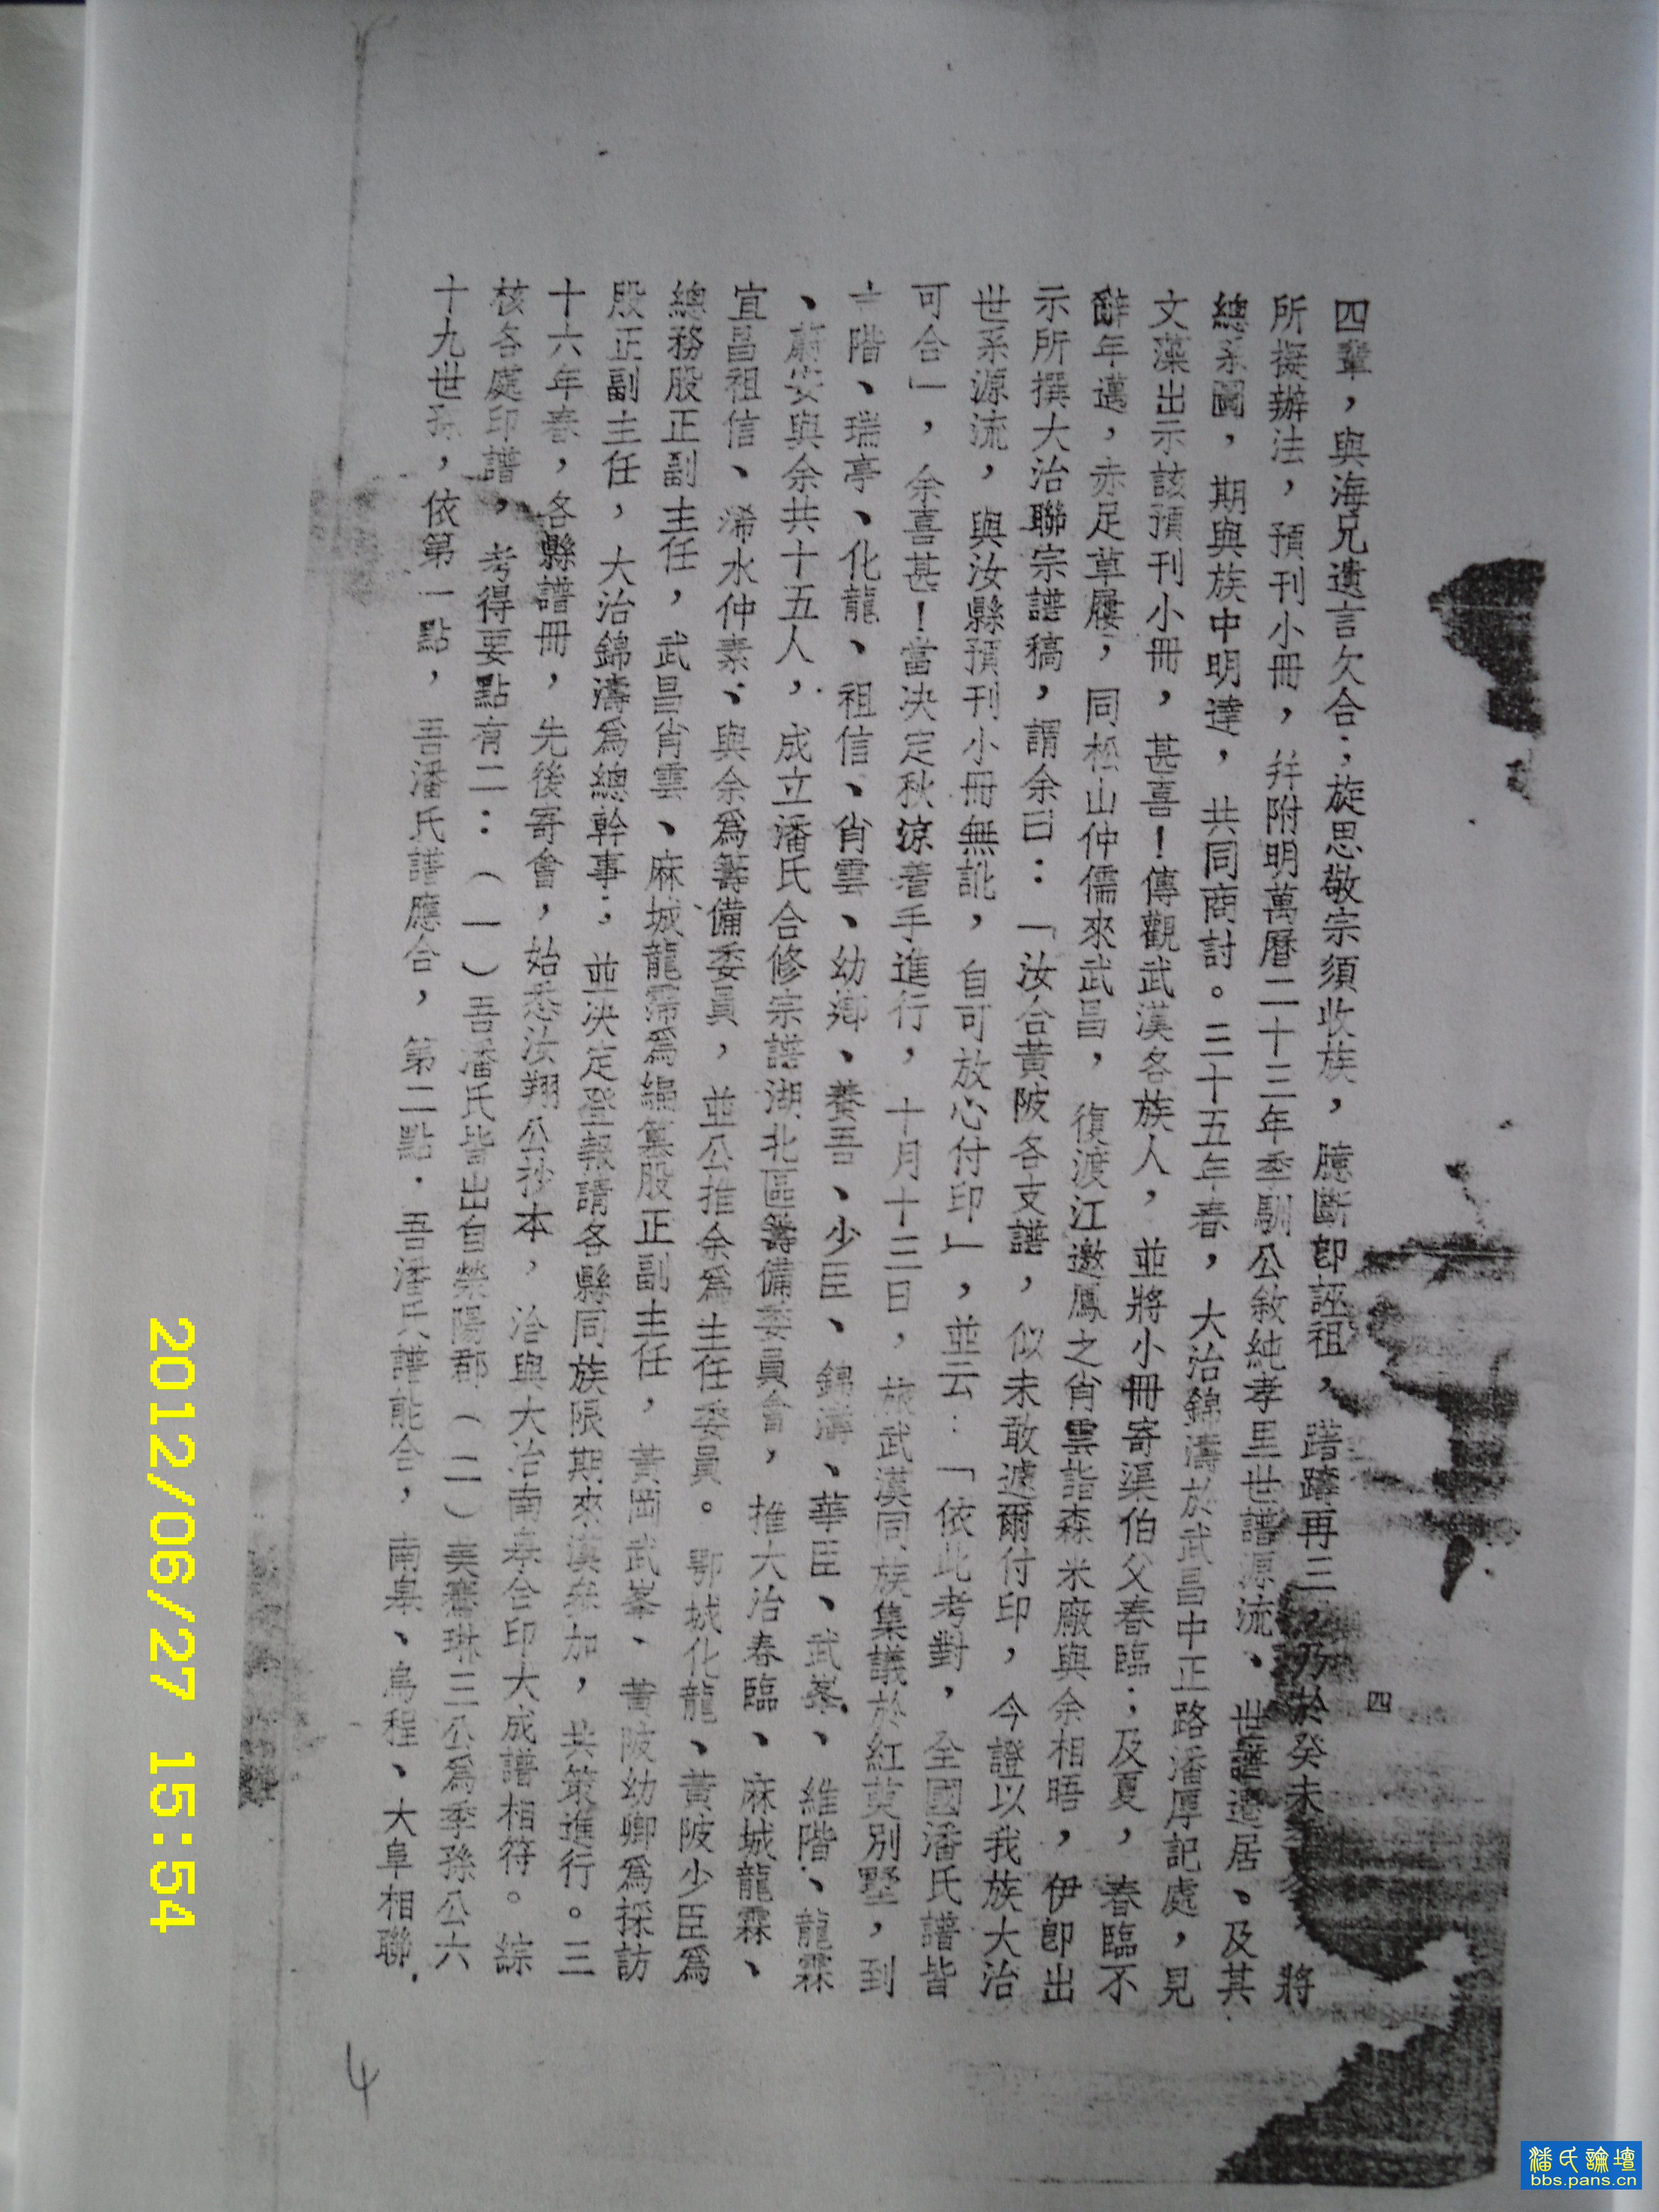 四
四輩，與海兄遺言欠合；旋思敬宗須收族，臆斷卽誣祖，躊躇再三，乃於癸未 將
所擬辦法，預刊小冊，并附明萬曆二十三年季馴公敘純孝里世譜源流、世譜遷居、及其
總系圖，期與族中明達，共同商討。三十五年春，大冶錦濤於武昌中正路潘厚記處，見
文藻出示該預刊小冊，甚喜！傳觀武漢各族人，並將小冊寄渠伯父春臨；及夏，春臨不
辭年邁，赤足草屨，同松山仲儒來武昌，復渡江邀鳳之肖雲詣森米廠與余相晤，伊卽出
示所撰大冶聯宗譜稿，謂余曰：「汝合黃陂各支譜，似未敢遽爾付印，今證以我族大冶
世系源流，與汝縣預刊小冊無訛，自可放心付印」，並云：「依此考對，全國潘氏譜皆
可合」，余喜甚！當決定秋涼着手進行，十月十三日，旅武漢同族集議於紅萸別墅，到
階、瑞亭、化龍、祖信、肖雲、幼卿、養吾、少臣、錦濤、華臣、武峯、維階、龍霖
、蔚安與余共十五人，成立潘氏合修宗譜湖北區籌備委員會，推大冶春臨、麻城龍霖、
宜昌祖信、浠水仲素、與余爲籌備委員，並公推余爲主任委員。鄂城化龍、黃陂少臣爲
總務股正副主任，武昌肖雲、麻城龍霈爲編纂股正副主任，黃岡武峯、黃陂幼卿爲採訪
股正副主任，大冶錦濤爲總幹事，並決定登報請各縣同族限期來漢參加，共策進行。三
十六年春，各縣譜冊，先後寄會，始悉汝翔公抄本，洽與大冶南皋合印大成譜相符。綜
核各處印譜，考得要點有二：（一）吾潘氏皆出自滎陽郡（二）美騫琳三公爲季孫公六
十九世孫，依第一點，吾潘氏譜應合，第二點，吾潘氏譜能合，南皋、烏程、大阜相聯
4
2012/06/27 15:54
潘氏論壇
bbs.pans.cn